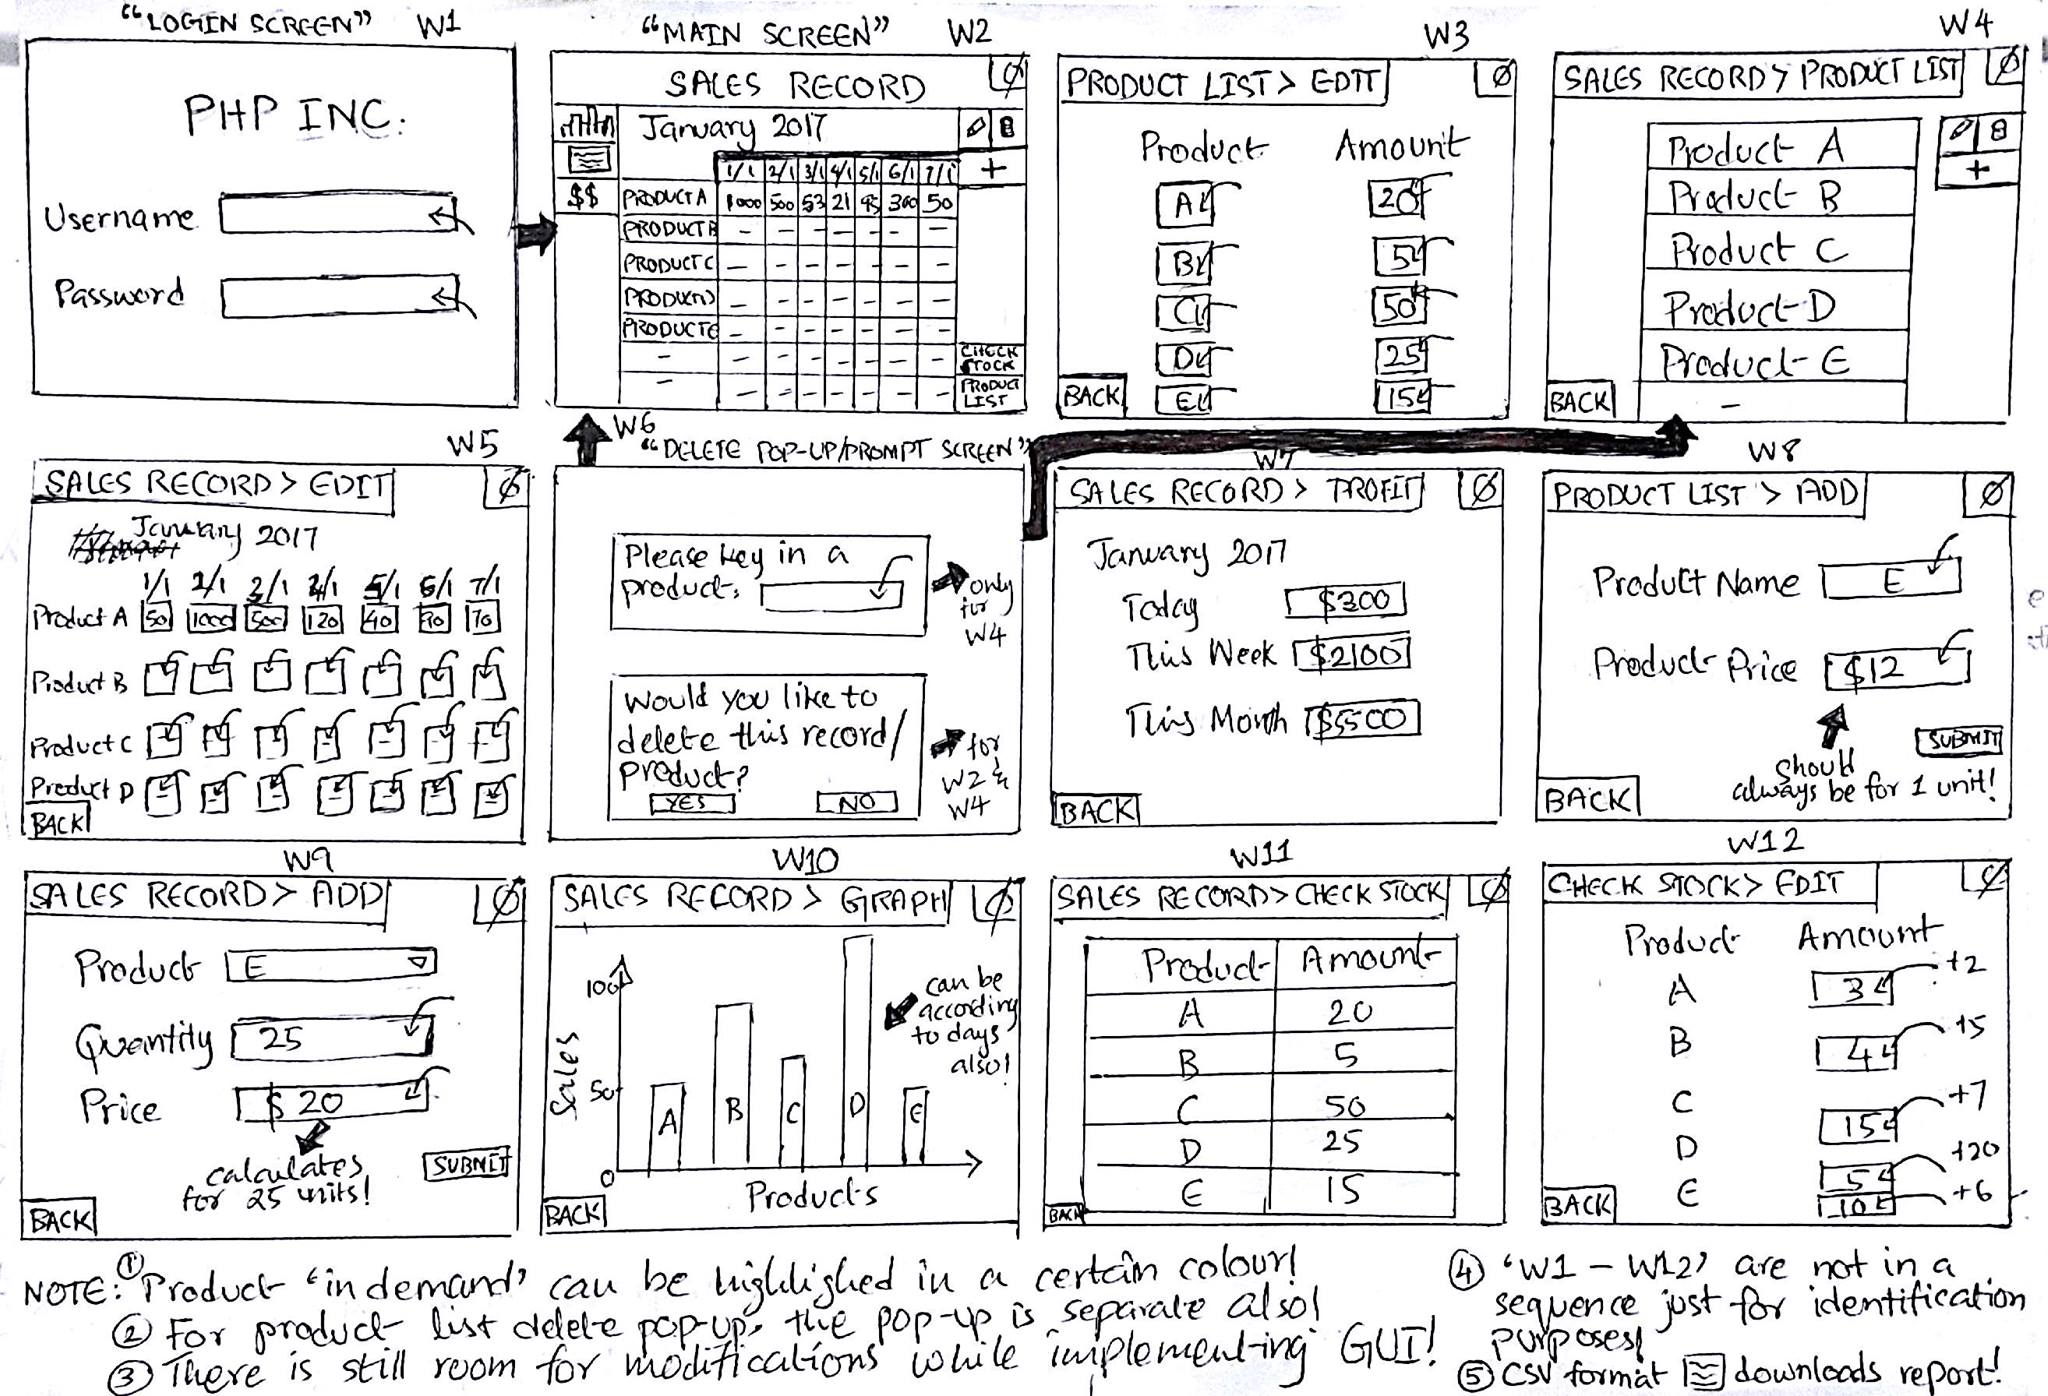 "LOGIN SCREEN" W1
PHP INC.
Username
Password
"MAIN SCREEN" W2
SALES RECORD
January 2017
1/1 2/1 3/1 4/1 5/1 6/1 7/1
+
$$
PRODUCT A 1000 500 53 21 95 300 50
PRODUCT B - - - - - - -
PRODUCT C - - - - - - -
PRODUCT D - - - - - - -
PRODUCT E - - - - - - -
- - - - - - - -
- - - - - - - -
CHECK
STOCK
PRODUCT
LIST
W3
PRODUCT LIST > EDIT
Product Amount
A 20
B 5
C 50
D 25
E 15
BACK
W4
SALES RECORD > PRODUCT LIST
+
Product A
Product B
Product C
Product D
Product E
-
BACK
W5
SALES RECORD > EDIT
January 2017
1/1 2/1 3/1 4/1 5/1 6/1 7/1
Product A 50 1000 500 120 40 90 70
Product B
Product C - - - - - - -
Product D - - - - - - -
BACK
W6
"DELETE POP-UP/PROMPT SCREEN"
Please key in a
product:
only
for
W4
Would you like to
delete this record/
product?
YES NO
for
W2 &
W4
W7
SALES RECORD > PROFIT
January 2017
Today $300
This Week $2100
This Month $5500
BACK
W8
PRODUCT LIST > ADD
Product Name E
Product Price $12
SUBMIT
should
always be for 1 unit!
BACK
W9
SALES RECORD > ADD
Product E
Quantity 25
Price $20
calculates
for 25 units!
SUBMIT
BACK
W10
SALES RECORD > GRAPH
100
50
0
Sales
A B C D E
Products
can be
according
to days
also!
BACK
W11
SALES RECORD > CHECK STOCK
Product Amount
A 20
B 5
C 50
D 25
E 15
BACK
W12
CHECK STOCK > EDIT
Product Amount
A 3 +2
B 4 +5
C 15 +7
D 5 +20
E 10 +6
BACK
NOTE: ① Product 'in demand' can be highlighed in a certain colour!
② For product list delete pop-up, the pop-up is separate also!
③ There is still room for modifications while implementing GUI!
④ 'W1 – W12' are not in a
sequence just for identification
purposes!
⑤ CSV format downloads report!